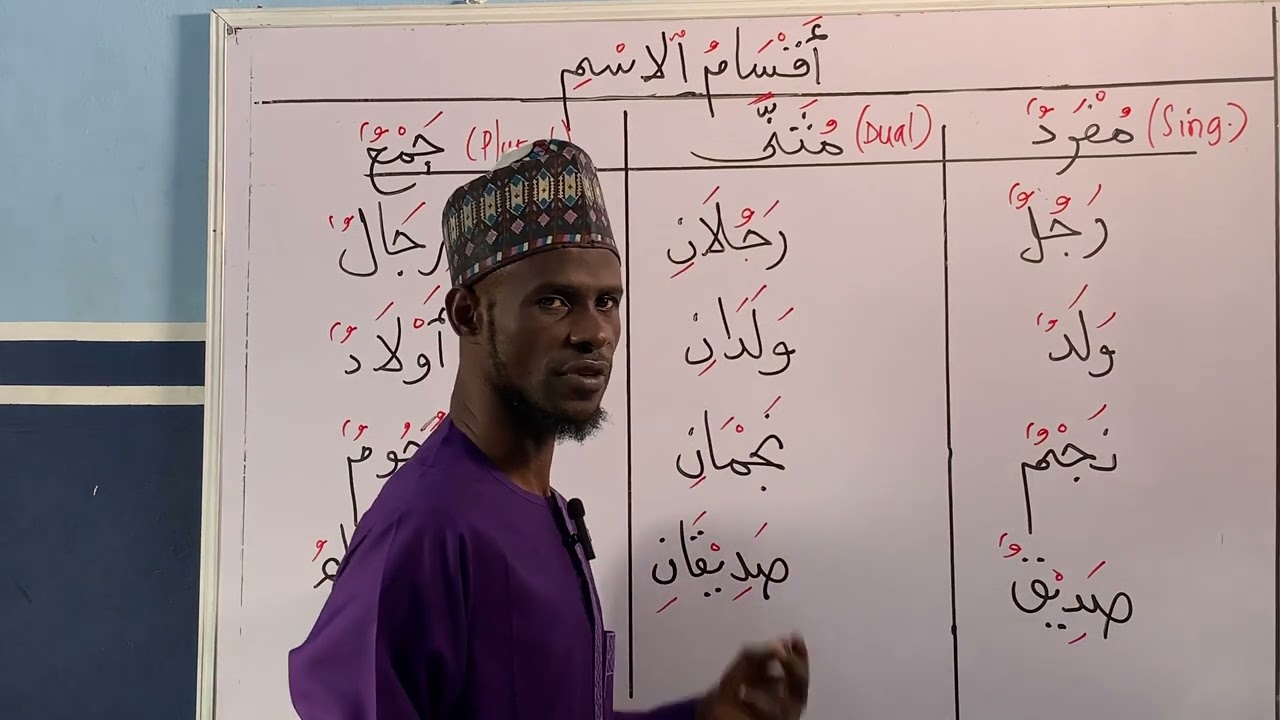 أَقْسَامُ ٱلاسْمِ
مُفْرَدٌ (Sing.) مُثَنًّى (Dual) جَمْعٌ
رَجُلٌ رَجُلَانِ رِجَالٌ
وَلَدٌ وَلَدَانِ أَوْلَادٌ
نَجْمٌ نَجْمَانِ
صَدِيْقٌ صَدِيْقَانِ